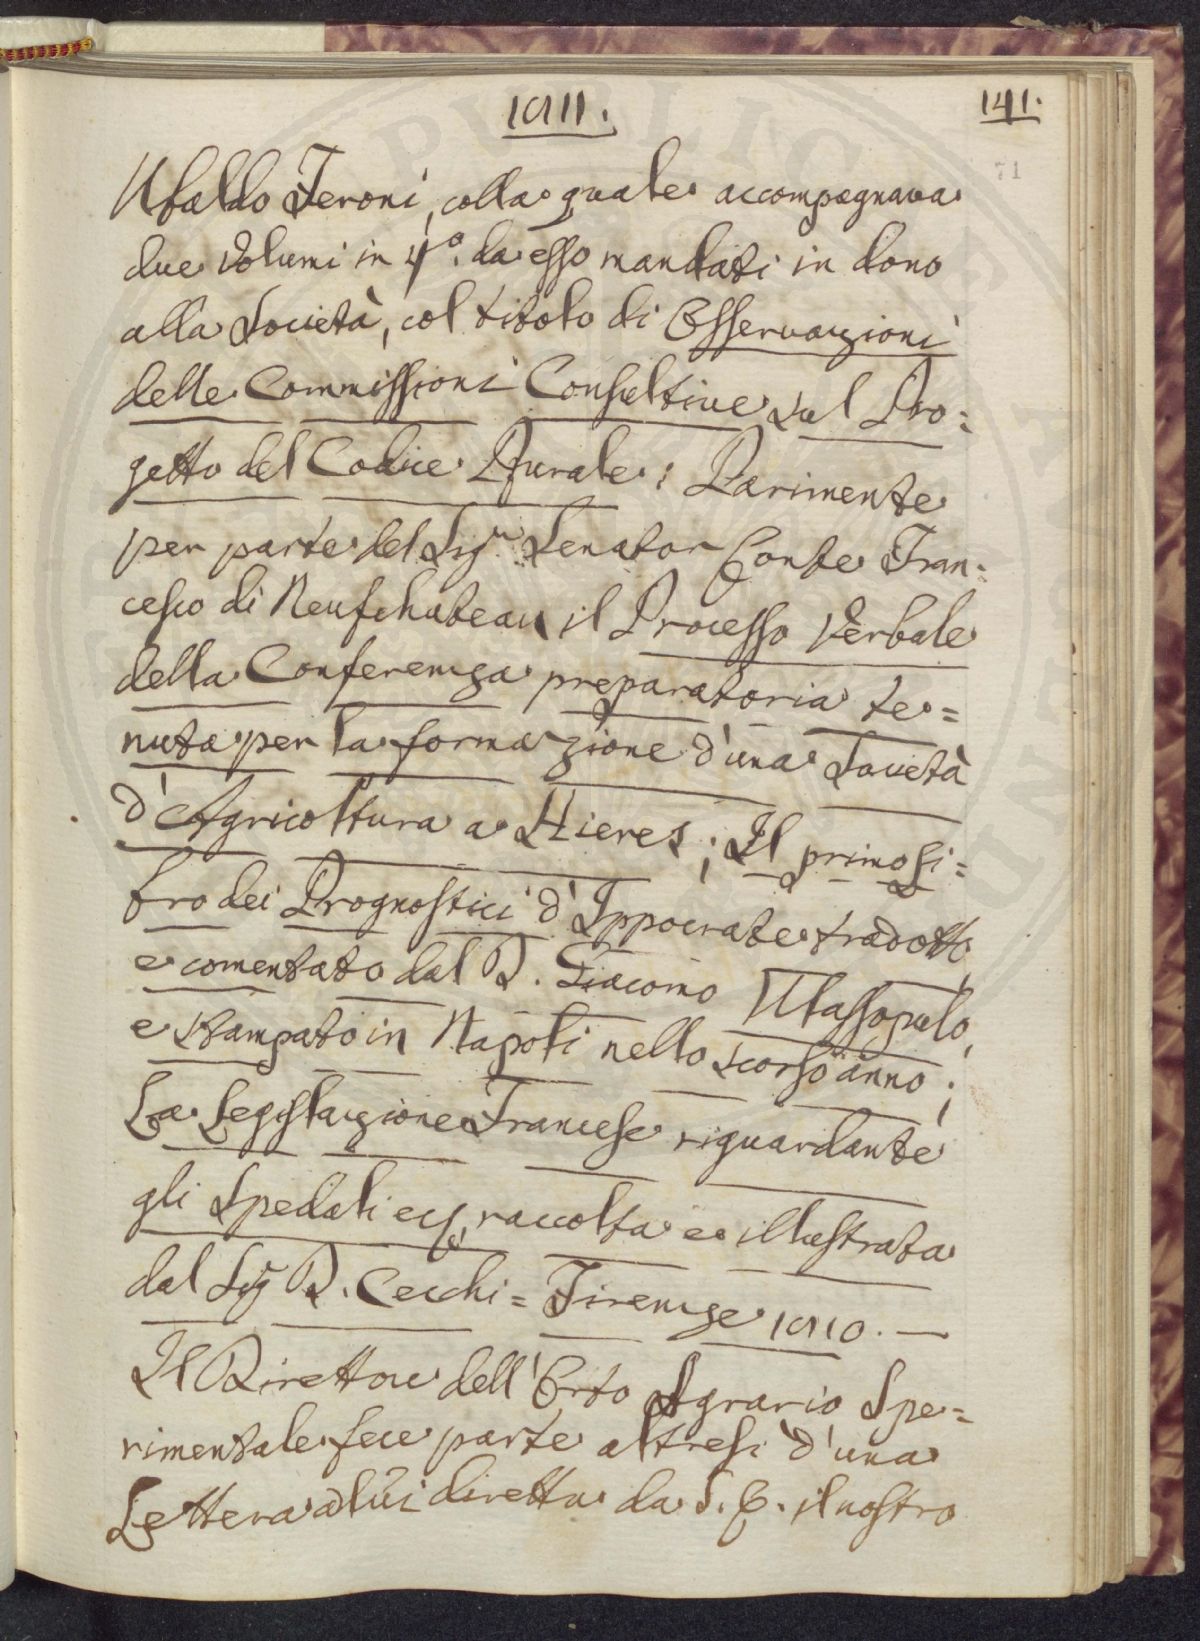 1811.
141.
71
Ubaldo Feroni, colla quale accompagnava
due Volumi in 4.º da esso mandati in dono
alla Società, col titolo di Osservazioni
delle Commissioni Consultive sul Pro=
getto del Codice Rurale: Parimente
per parte del Sigr. Senator Conte Fran=
cesco di Neufchateau il Processo Verbale
della Conferenza preparatoria te=
nuta per la formazione d'una Società
d'Agricoltura a Hieres; Il primo Li=
bro dei Prognostici d'Ippocrate tradotto,
e comentato dal D. Giacomo
e stampato in Napoli nello scorso anno;
La Legislazione Francese riguardante
gli Spedali ec, raccolta e illustrata
dal Sigr D. Cecchi = Firenze 1810. —
Il Direttore dell'Orto Agrario Spe=
rimentale fece parte altresi d'una
Lettera a lui diretta da S. E. il nostro